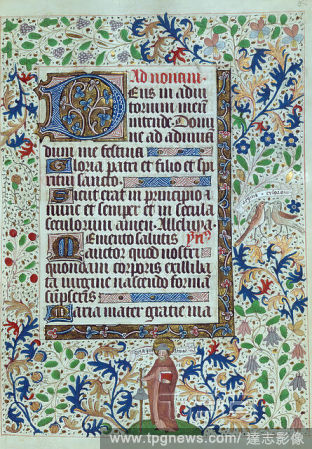 Ad nonam.
Deus in adiu
torium meū
intende. Domi
ne ad adiuuā
dum me festina
Gloria patri et filio et spi
ritui sancto.
Sicut erat in principio et
nunc et semper et in secula
seculorum amen. Alleluya.
Memento salutis
auctor quod nostri
quondam corporis ex illiba
ta uirgine nascendo formā
sumpseris
Maria mater gratie ma
www.tpgnews.com/達志影像